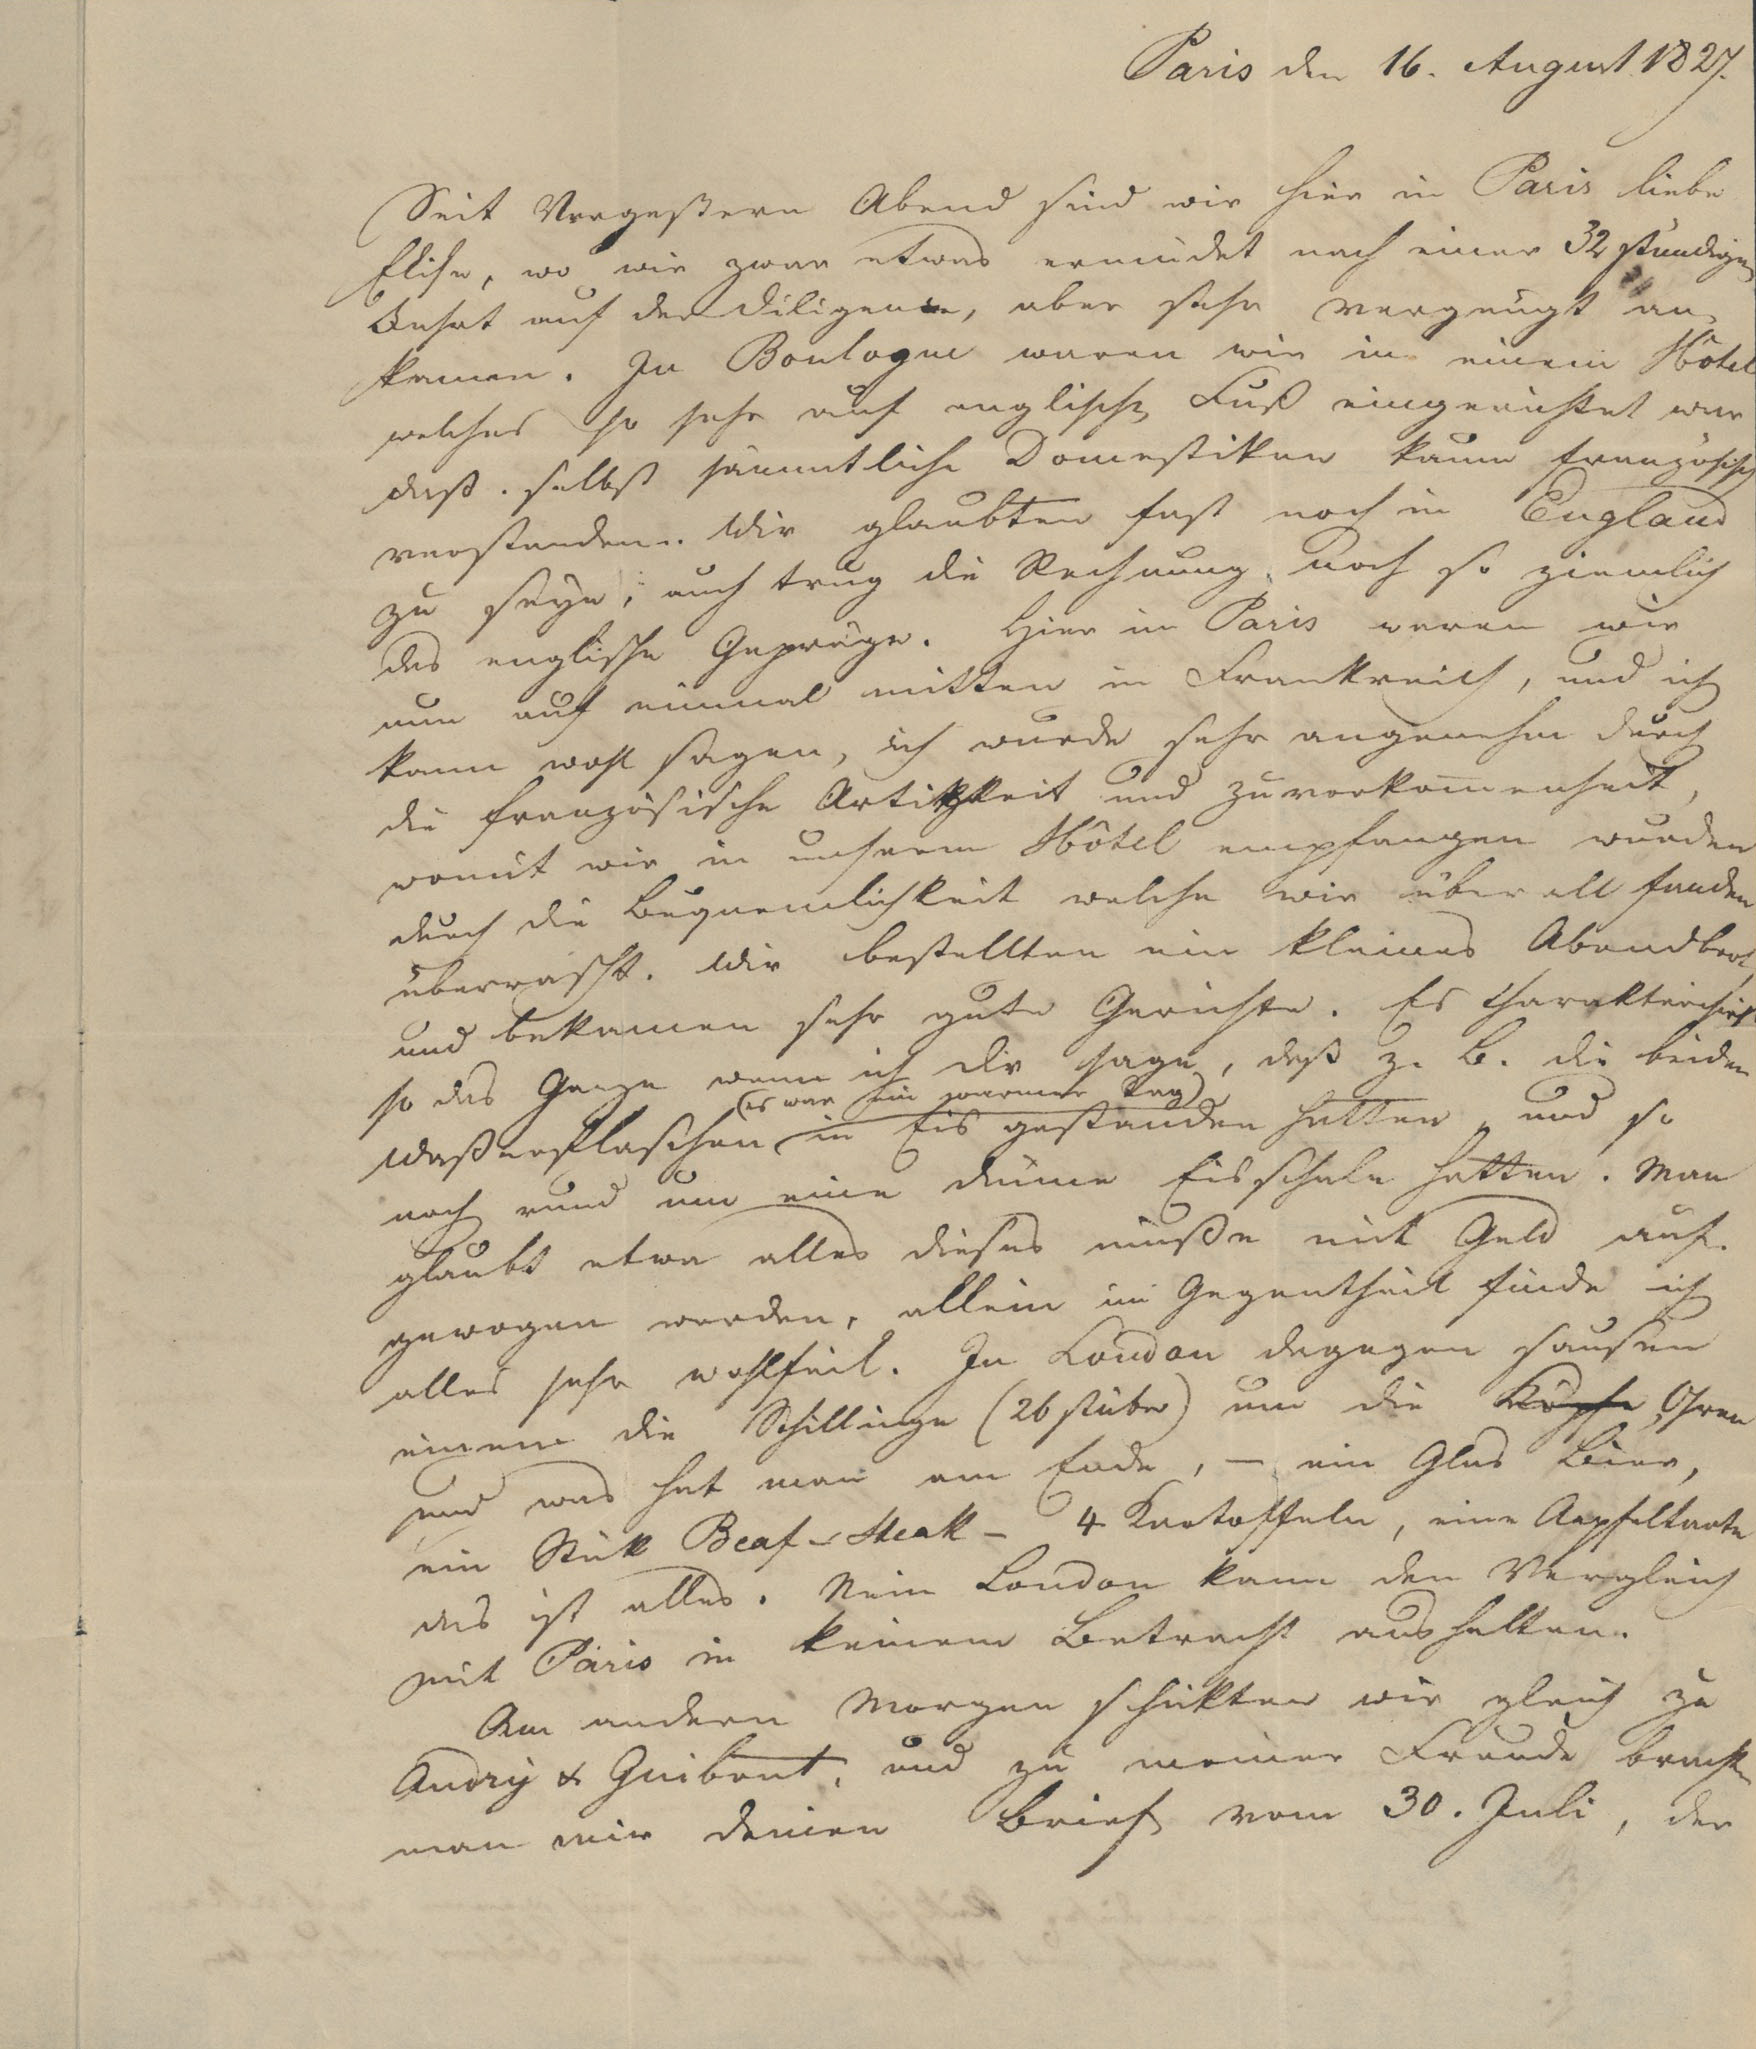 Paris den 16. August 1827.
Seit Vorgeßtern Abend sind wir hier in Paris liebe
Elise, wo wir zwar etwas ermüdet nach einer 32 stündigen
Fahrt auf der Diligence, aber sehr vergnügt an-
kamen. In Boulogne waren wir in einem Hôtel
welches so sehr auf englischen Fuß eingerichtet war
daß selbst sämmtliche Domestiken kaum französisch
verstanden. Wir glaubten fast noch in England
zu seyn, auch trug die Rechnung noch so ziemlich
das englische Gepräge. Hier in Paris waren wir
nun auf einmal mitten in Frankreich, und ich
kann wohl sagen, ich wurde sehr angenehm durch
die französische Artigkeit und zuvorkomenheit,
womit wir in unserem Hôtel empfangen wurden
durch die Bequemlichkeit welche wir überall fanden
überrascht. Wir bestellten ein kleines Abendbrot,
und bekamen sehr gute Gerichte. Es charakterisirt
so das Ganze wenn ich dir sage, daß z. B. die beiden
(es war ein warmer Tag)
Waßerflaschen in Eis gestanden hatten, und so
noch rund um eine dünne Eisschale hatten. Man
glaubt etwa alles dieses müße mit Geld auf-
gewogen werden, allein im Gegentheil finde ich
alles sehr wohlfeil. In London dagegen sausen
einem die Schillinge (26 stüber) um die Köpfe Ohren
und was hat man am Ende, – ein Glas Bier,
ein Stük Beaf-Steak – 4 Kartoffeln, eine Aepfeltarte
das ist alles. Nein London kann den Vergleich
mit Paris in keinem Betracht aushalten.
Am andern Morgen schikten wir gleich zu
Andry & Guibout, und zu meiner Freude brachte
man mir deinen Brief vom 30. Juli, der